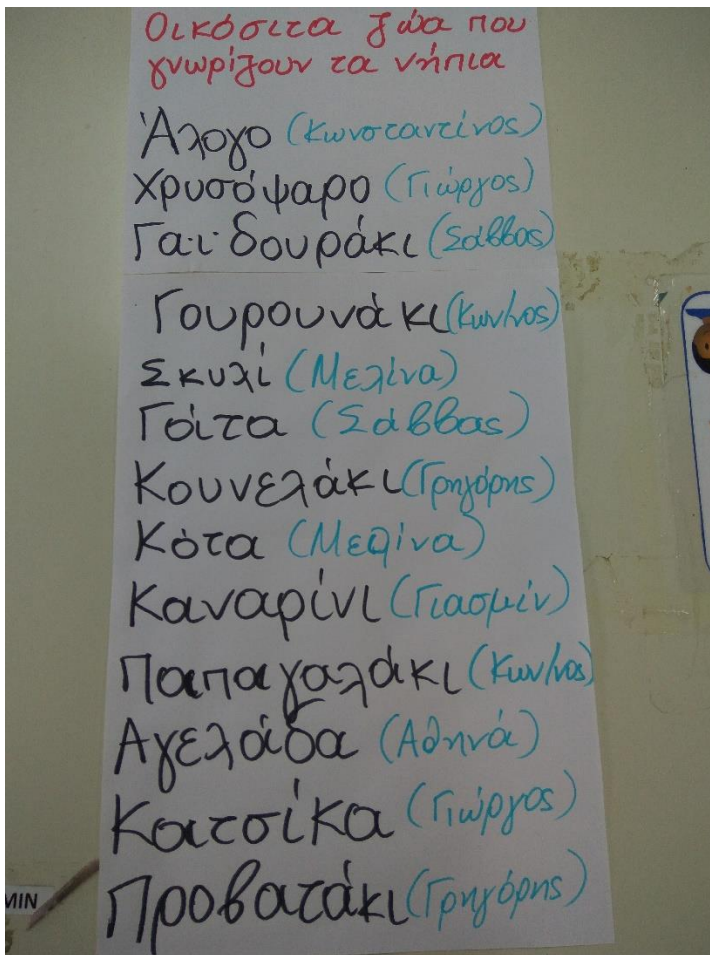 Οικόσιτα ζώα που
γνωρίζουν τα νήπια
Άλογο (Κωνσταντίνος)
Χρυσόψαρο (Γιώργος)
Γαϊδουράκι (Σάββας)
Γουρουνάκι (Κων/νος)
Σκυλί (Μελίνα)
Γάτα (Σάββας)
Κουνελάκι (Γρηγόρης)
Κότα (Μελίνα)
Καναρίνι (Γιασμίν)
Παπαγαλάκι (Κων/νος)
Αγελάδα (Αθηνά)
Κατσίκα (Γιώργος)
Προβατάκι (Γρηγόρης)
MIN